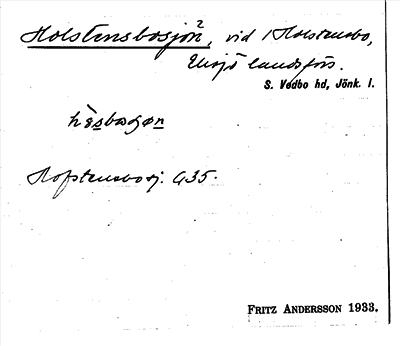 Holstensbosjön?, vid 1 Holstensbo,
Eksjö landsförs.
S. Vedbo hd, Jönk. l.
Hofstensbosj. G35.
FRITZ ANDERSSON 1933.